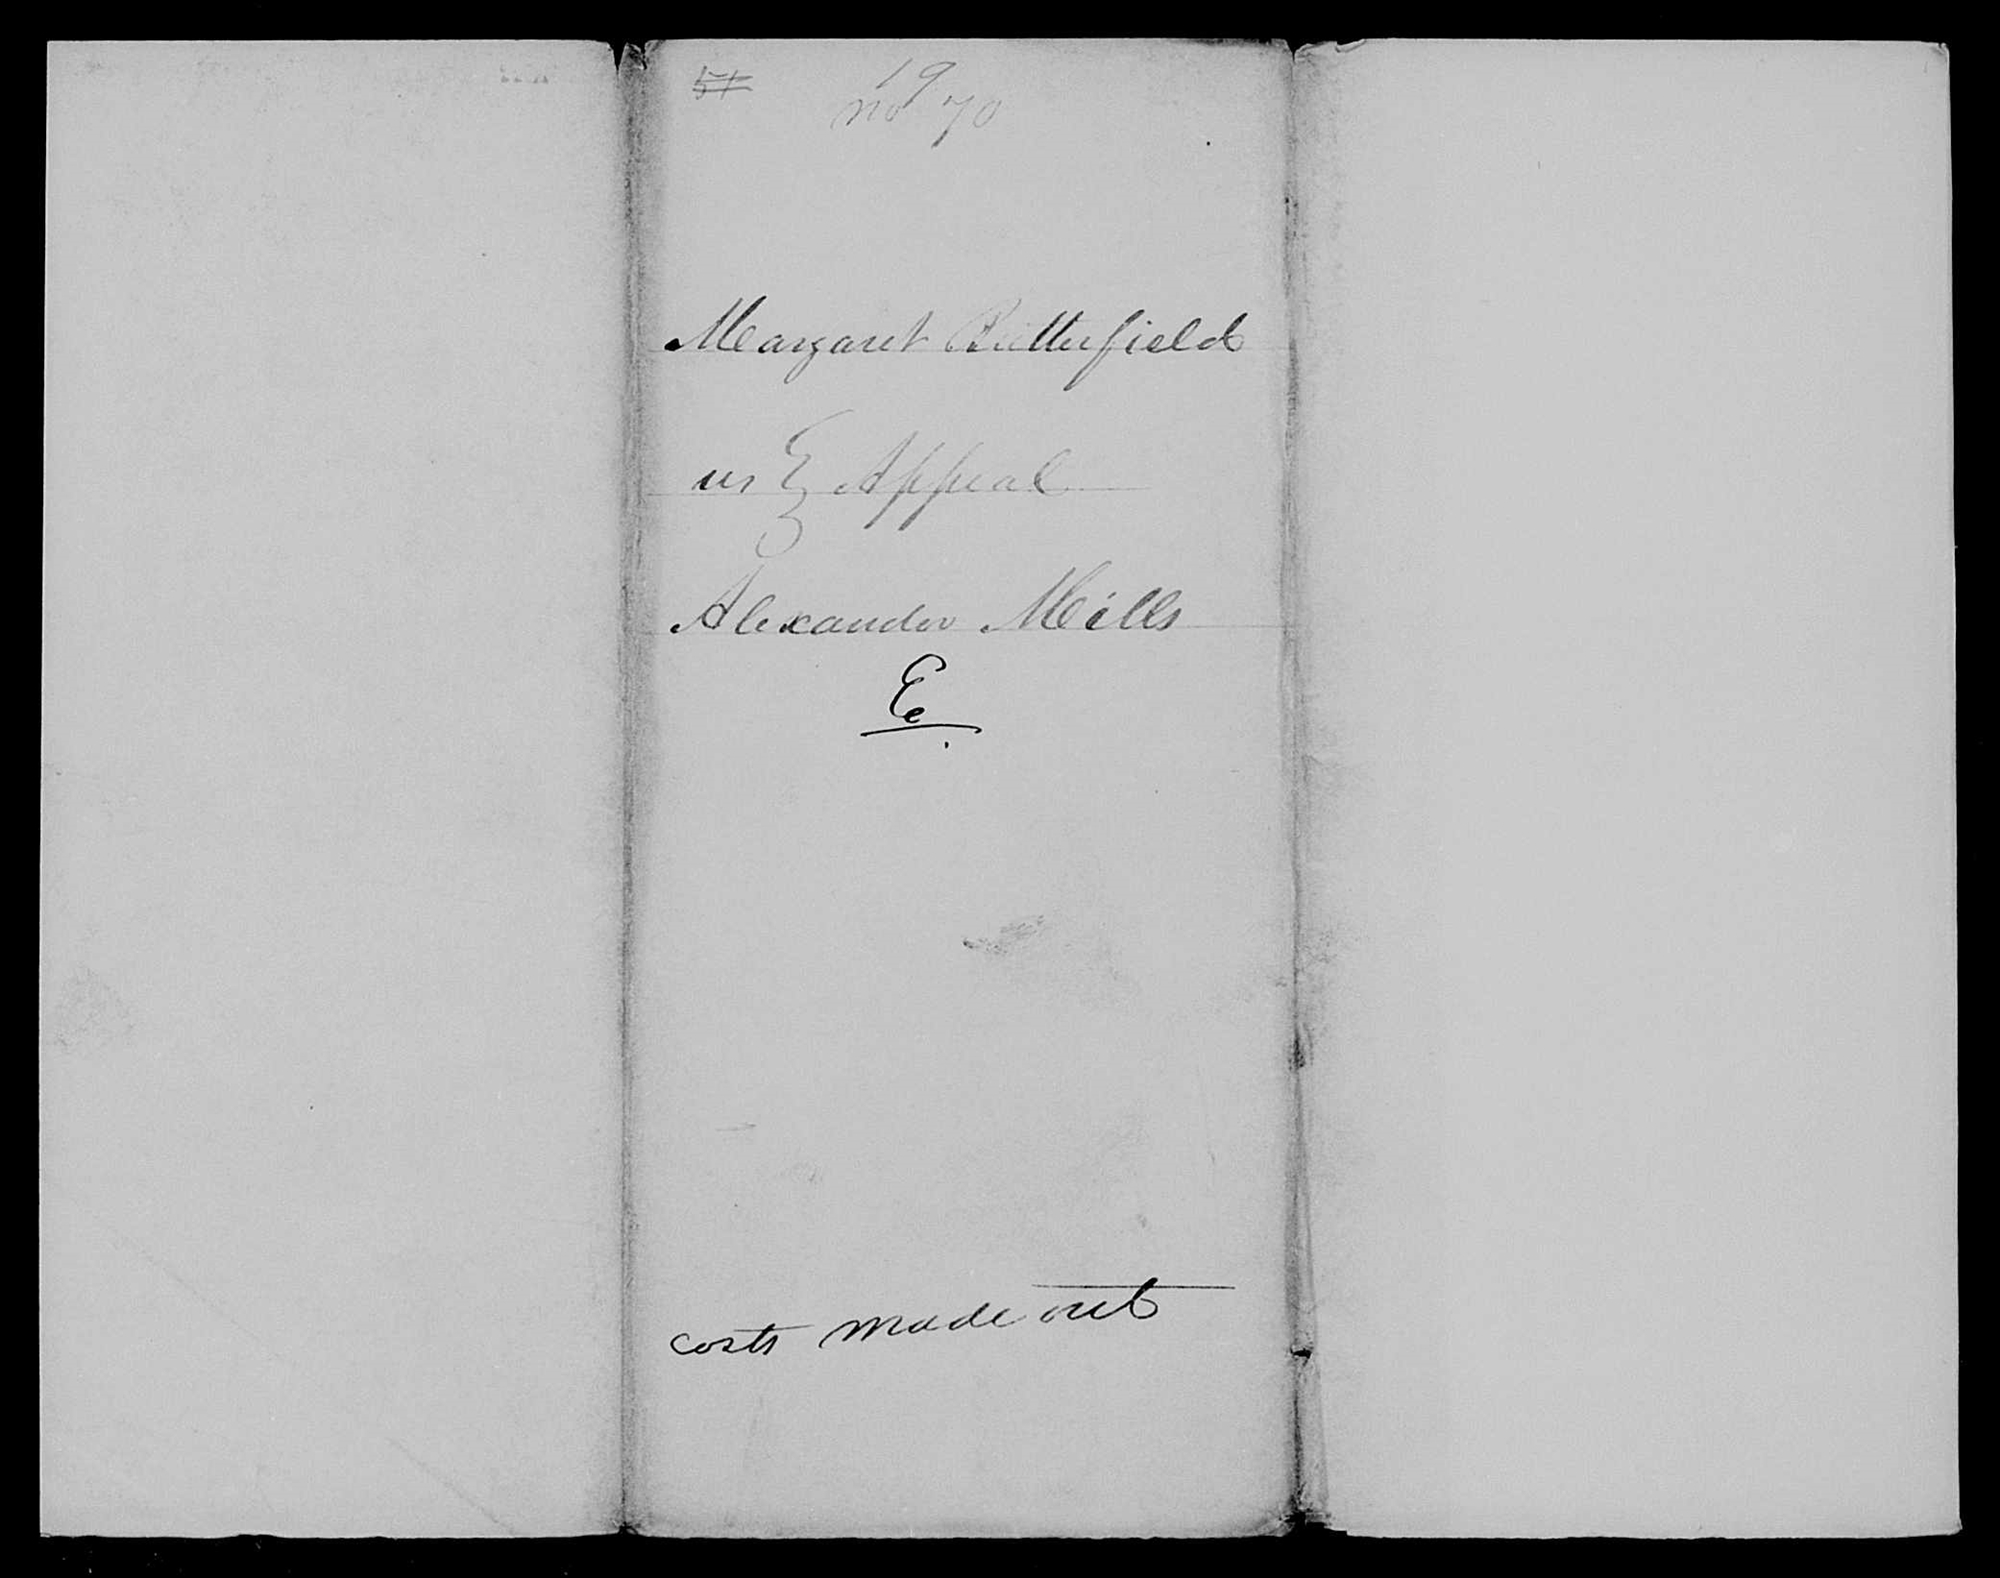 19
no 70
Margaret Butterfield
vs } Appeal
Alexander Mills
E.
costs made out